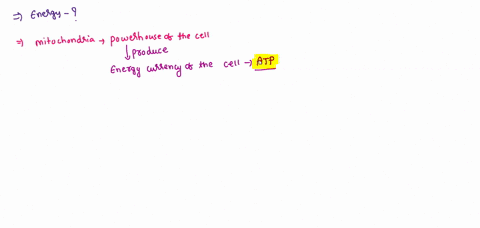 ⇒ Energy - ?
⇒ mitochondria → powerhouse of the cell
↓ produce
Energy currency of the cell → ATP